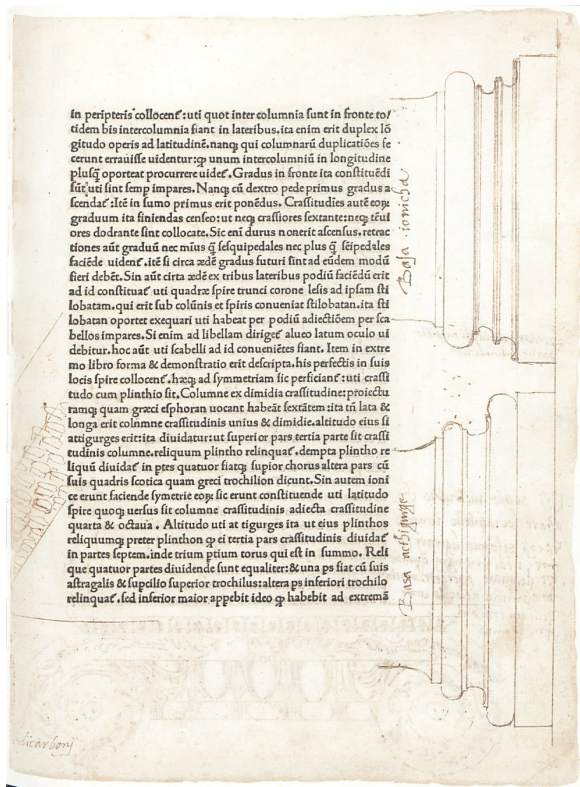 in peripteris collocent̄: uti quot inter columnia sunt in fronte to/
tidem bis intercolumnia fiant in lateribus. ita enim erit duplex lō
gitudo operis ad latitudinē. nanq; qui columnarū duplicatiōes fe
cerunt errauisse uidentur: ꝙ unum intercolumniū in longitudine
plusq̄ oporteat procurrere uidet̄. Gradus in fronte ita constituēdi
sūt uti sint semꝑ impares. Nanq; cū dextro pede primus gradus a
scendat̄: Itē in sumo primus erit ponēdus. Crassitudīes autē eoꝝ
graduum ita finiendas censeo: ut neq; crassiores sextante: neq; tēui
ores dodrante sint collocate. Sic eni durus non erit ascensus. retrac
tiones aūt graduū nec mīus q̄ sesquipedales nec plus q̄ seīpedales
faciēde uident̄. itē si circa ædē gradus futuri sint ad eūdem modū
fieri debēt. Sin aūt circa ædē ex tribus lateribus podiū faciēdū erit
ad id constituat̄ uti quadræ spire trunci corone lesis ad ipsam sti
lobatam. qui erit sub colūnis et spiris conueniat stilobatan. ita sti
lobatan oportet exequari uti habeat per podiū adiectiōem per sca
bellos impares. Si enim ad libellam diriget̄ alueo latum oculo ui
debitur. hoc aūt uti scabelli ad id conueniētes fiant. Item in extre
mo libro forma & demonstratio erit descripta. his perfectis in suis
locis spire collocent̄. hæq; ad symmetriam sic perficiant̄: uti crassi
tudo cum plinthio sit. Columne ex dimidia crassitudine: proiectu
ramq; quam græci esphoran uocant habeāt sextātem: ita tn̄ lata &
longa erit colnmne crassitudinis unius & dimidie. altitudo eius si
attigurges erit: ita diuidatur: ut superior pars tertia parte sit crassi
tudinis columne. reliquum plintho relinquat̄. dempta plintho re
liquū diuidat̄ in ptes quatuor fiatq; supior chorus altera pars cū
suis quadris scotica quam greci trochilion dicunt. Sin autem ioni
ce erunt faciende symetrie eoꝝ sic erunt constituende uti latitudo
spire quoq; uersus sit columne crassitudinis adiecta crassitudine
quarta & octaua. Altitudo uti at tigurges ita ut eius plinthos
reliquumq; preter plinthon ꝙ ei tertia pars crassitudinis diuidat̄
in partes septem. inde trium ptium torus qui est in summo. Reli
que quatuor partes diuidende sunt equaliter: & una ps fiat cū suis
astragalis & supcilio superior trochilus: altera ps inferiori trochilo
relinquat̄. sed inferior maior appebit ideo ꝙ habebit ad extremā
Basa ionicha
Basa